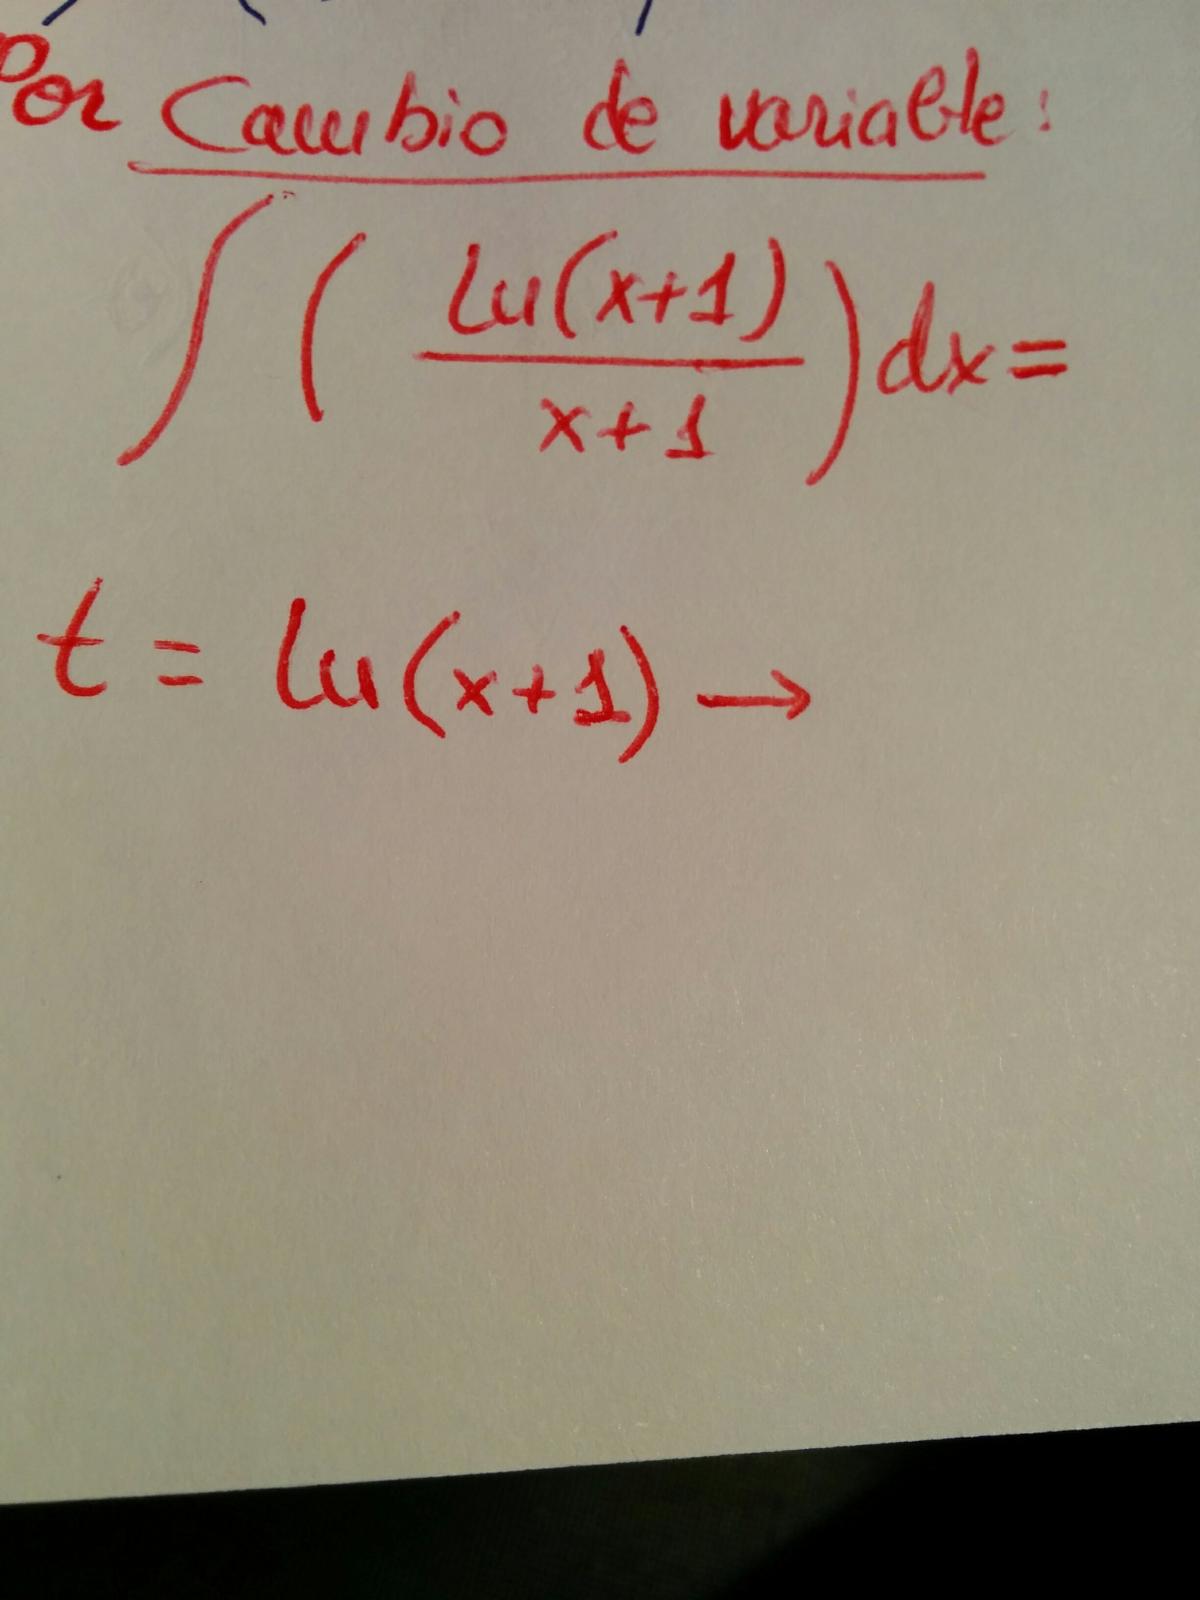 Por Cambio de variable:
∫ ( ln(x+1) / x+1 ) dx =
t = ln(x+1) →